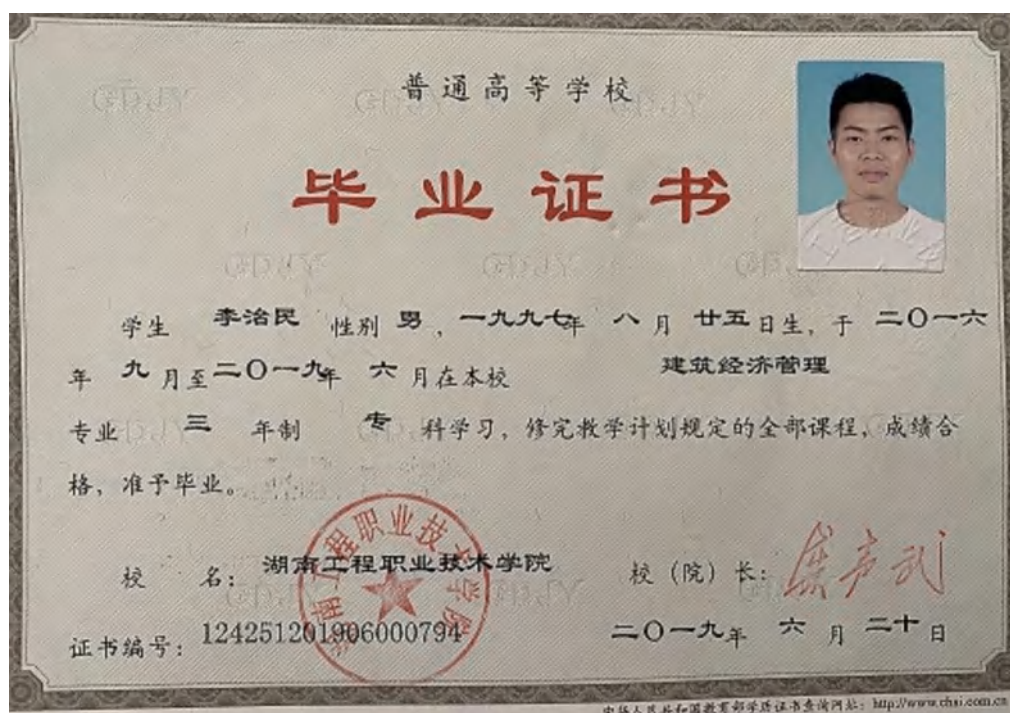 普通高等学校
毕业证书
学生 李治民 性别 男，一九九七年 八 月 廿五日生，于 二〇一六
年 九 月至二〇一九年 六 月在本校 建筑经济管理
专业 三 年制 专 科学习，修完教学计划规定的全部课程，成绩合
格，准予毕业。
校 名：湖南工程职业技术学院 校（院）长：
湖南工程职业技术学院
证书编号：124251201906000794 二〇一九年 六 月 二十日
中华人民共和国教育部学历证书查询网址：http://www.chsi.com.cn